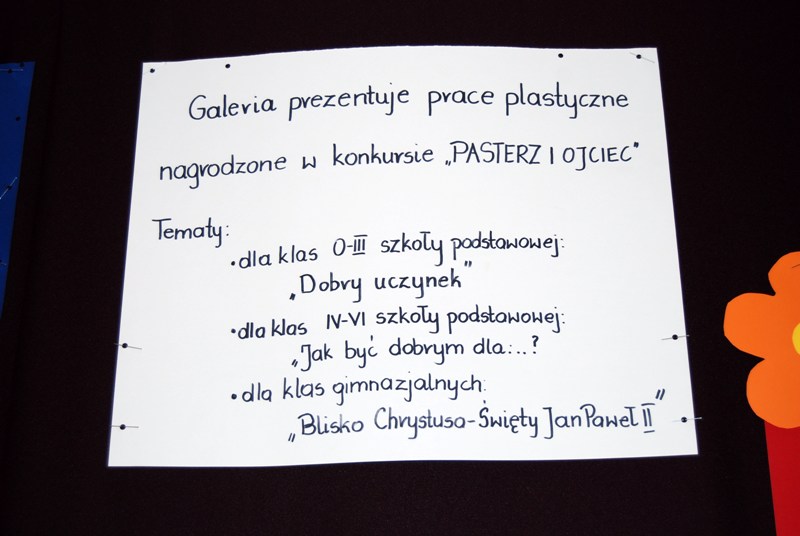 Galeria prezentuje prace plastyczne
nagrodzone w konkursie „PASTERZ I OJCIEC"
Tematy:
• dla klas 0-III szkoły podstawowej:
„Dobry uczynek"
• dla klas IV-VI szkoły podstawowej:
„Jak być dobrym dla...?
• dla klas gimnazjalnych:
„Blisko Chrystusa-Święty Jan Paweł II"